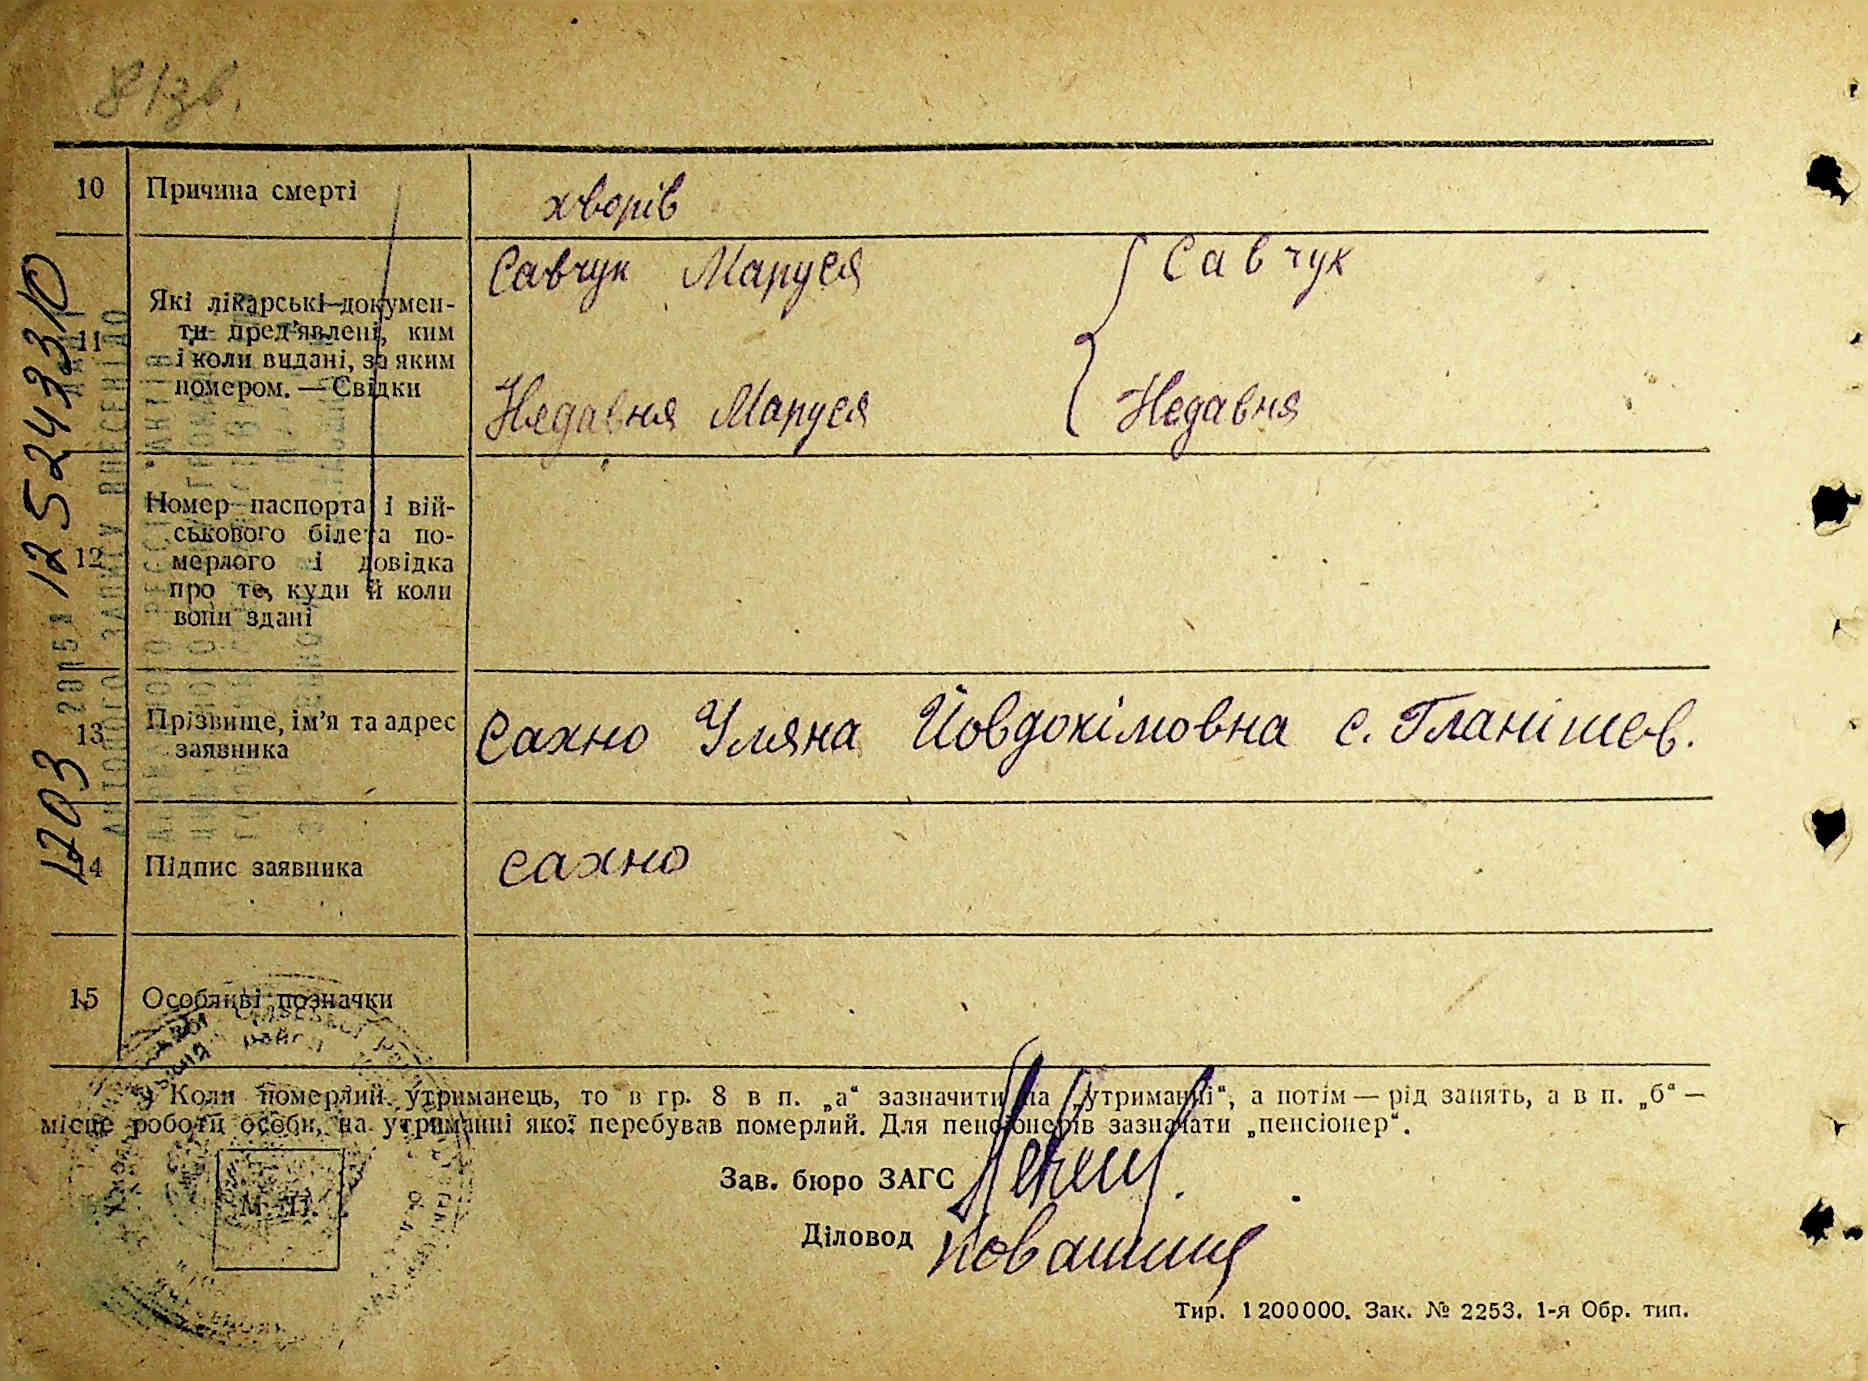 81зв.
10 Причина смерті хворів
11 Які лікарські докумен-
ти пред'явлені, ким
і коли видані, за яким
номером. — Свідки
Савчук Маруся Савчук
Нядавня Маруся Недавня
12 Номер паспорта і вій-
ськового білета по-
мерлого і довідка
про те, куди й коли
вони здані
13 Прізвище, ім'я та адрес
заявника
Сахно Уляна Йовдокімовна с. Гланішев.
14 Підпис заявника сахно
15 Особливі позначки
Коли померлий утриманець, то в гр. 8 в п. „а“ зазначити на „утриманні“, а потім — рід занять, а в п. „б“ —
місце роботи особи, на утриманні якої перебував померлий. Для пенсіонерів зазначати „пенсіонер“.
Зав. бюро ЗАГС
Діловод
М. П.
Тир. 1200000. Зак. № 2253. 1-я Обр. тип.
АКТОВОГО ЗАПИСУ ВНЕСЕНІ ДО
1203 2015 12524330